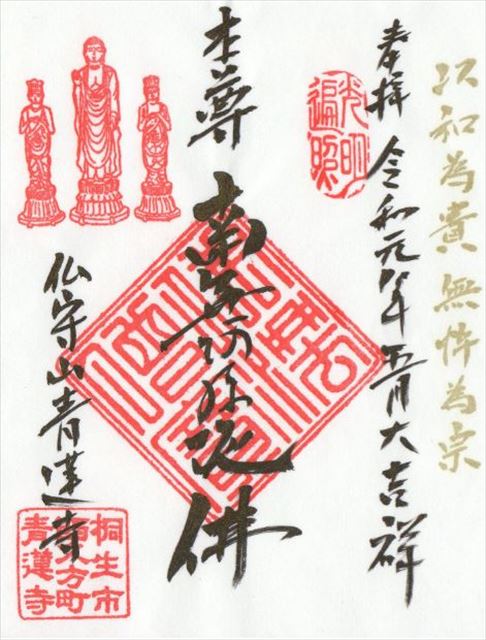 以和為貴無忤為宗
奉拝 令和元年五月大吉祥
光明
遍照
本尊
南無阿弥陀佛
仏守山青蓮寺
桐生市
西久方町
青蓮寺